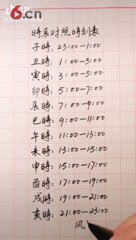 6.cn
時辰对照時刻表
子時 23:00-1:00
丑時: 1:00-3:00
寅時: 3:00-5:00
卯時: 5:00-7:00
辰時: 7:00-9:00
巳時: 9:00-11:00
午時: 11:00-13:00
未時: 13:00-15:00
申時: 15:00-17:00
酉時: 17:00-19:00
戌時: 19:00-21:00
亥時: 21:00-23:00